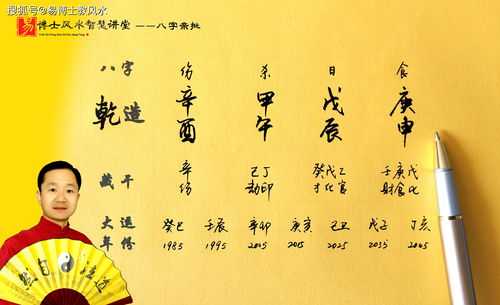 搜狐号@易博士教风水
易博士风水智慧讲堂 ——八字亲批
八字 伤 杀 日 食
乾造 辛酉 甲午 戊辰 庚申
藏干 辛 己丁 癸戊乙 壬庚戊
伤 劫印 才比官 财食比
大运 癸巳 壬辰 辛卯 庚寅 己丑 戊子 丁亥
年份 1985 1995 2005 2015 2025 2035 2045
道法自然